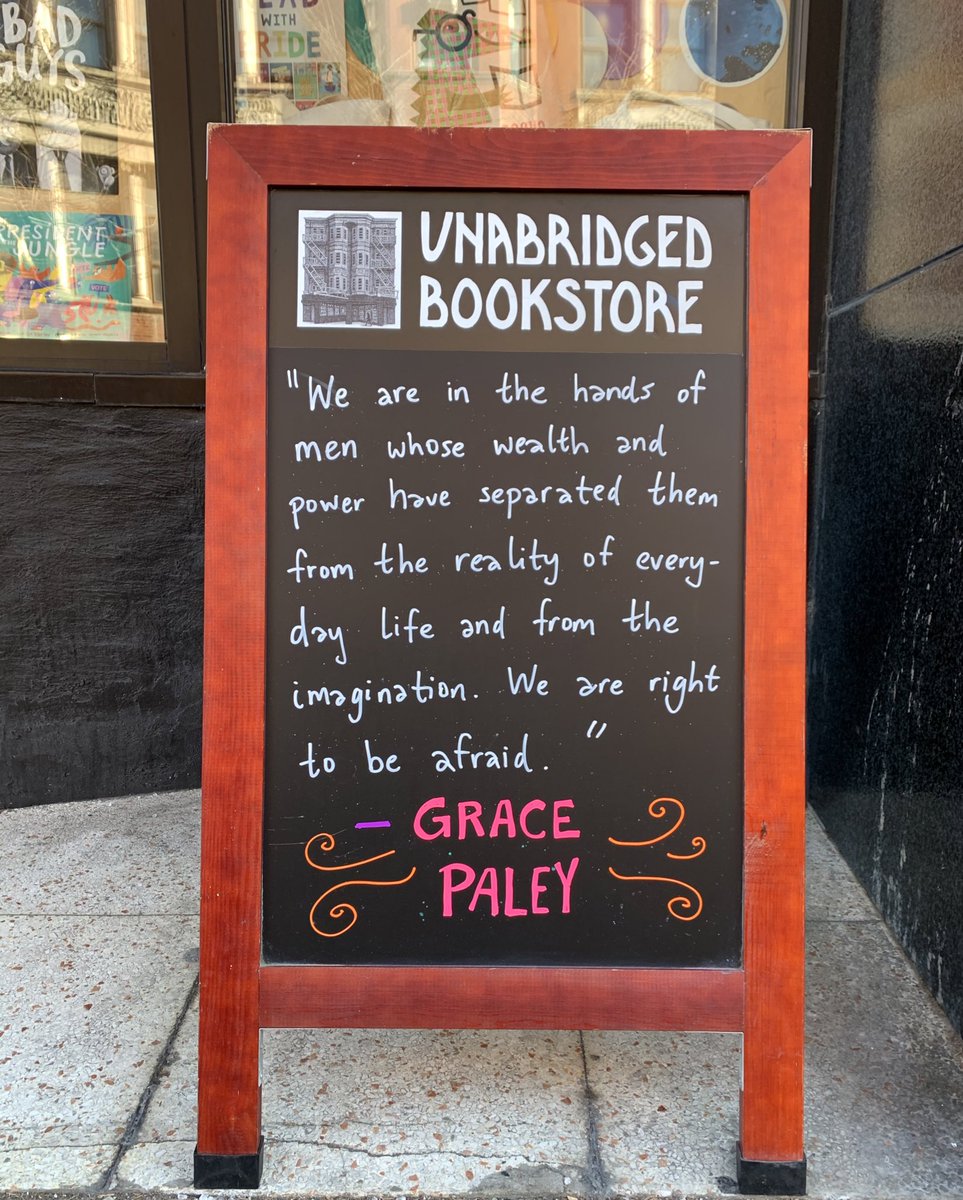 BAD
GUYS
READ
WITH
PRIDE
PRESIDENT
JUNGLE
VOTE
UNABRIDGED
BOOKSTORE
"We are in the hands of
men whose wealth and
power have separated them
from the reality of every-
day life and from the
imagination. We are right
to be afraid."
- GRACE
PALEY